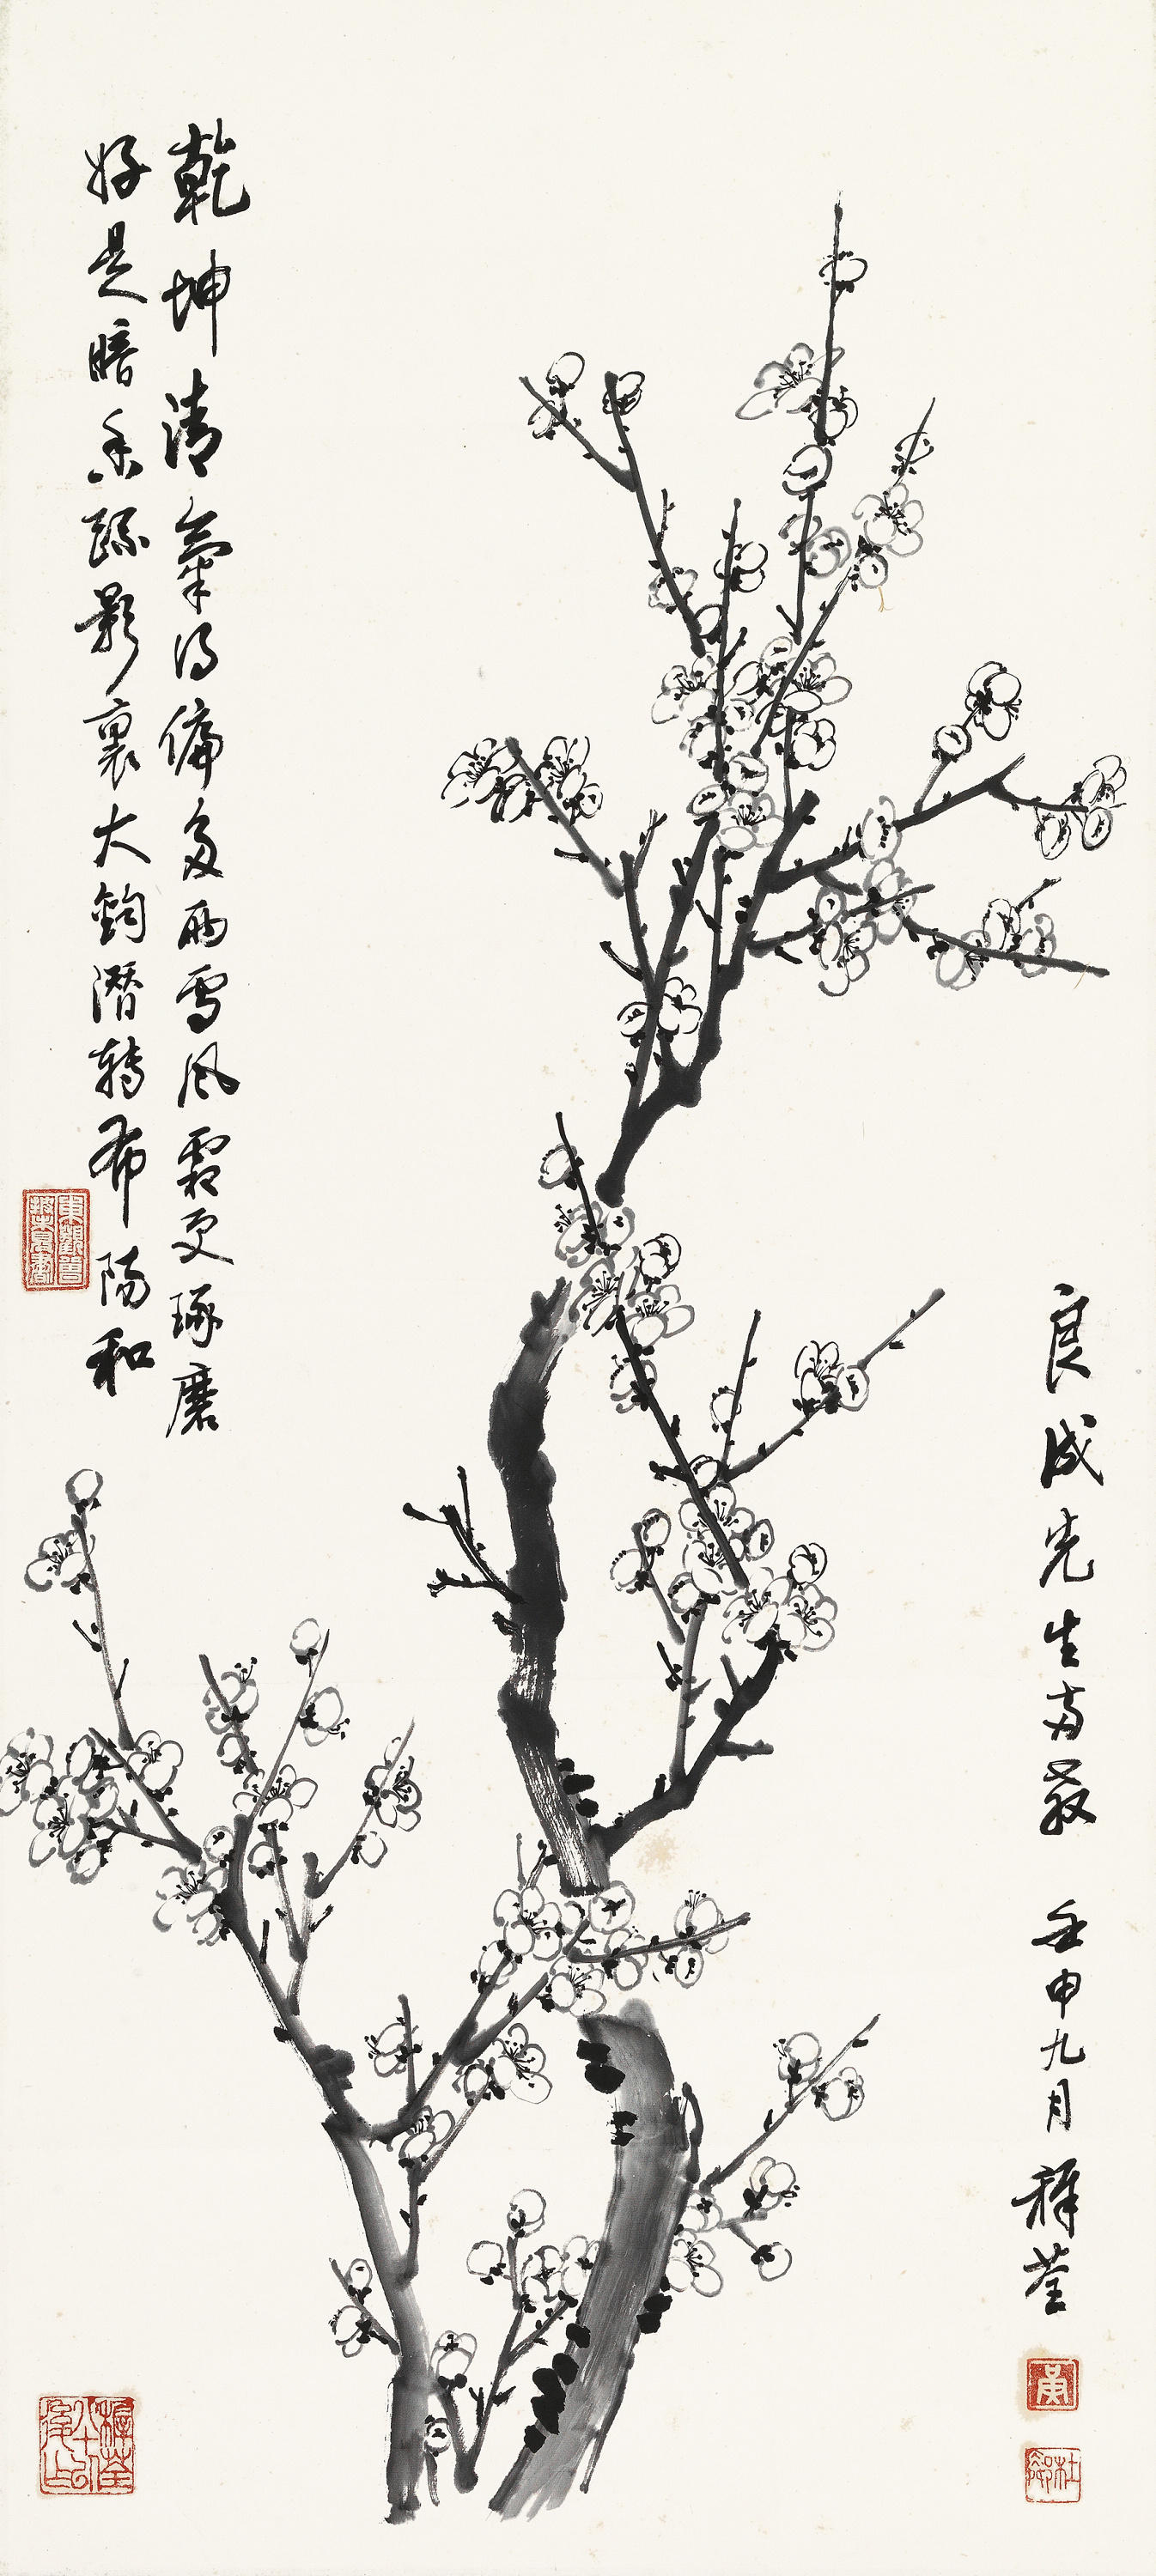 乾坤清氣得偏多雨雪風霜更琢磨
好是暗香疏影裏大鈞潛轉布陽和
良成先生兩教 壬申九月 祥荃
黃